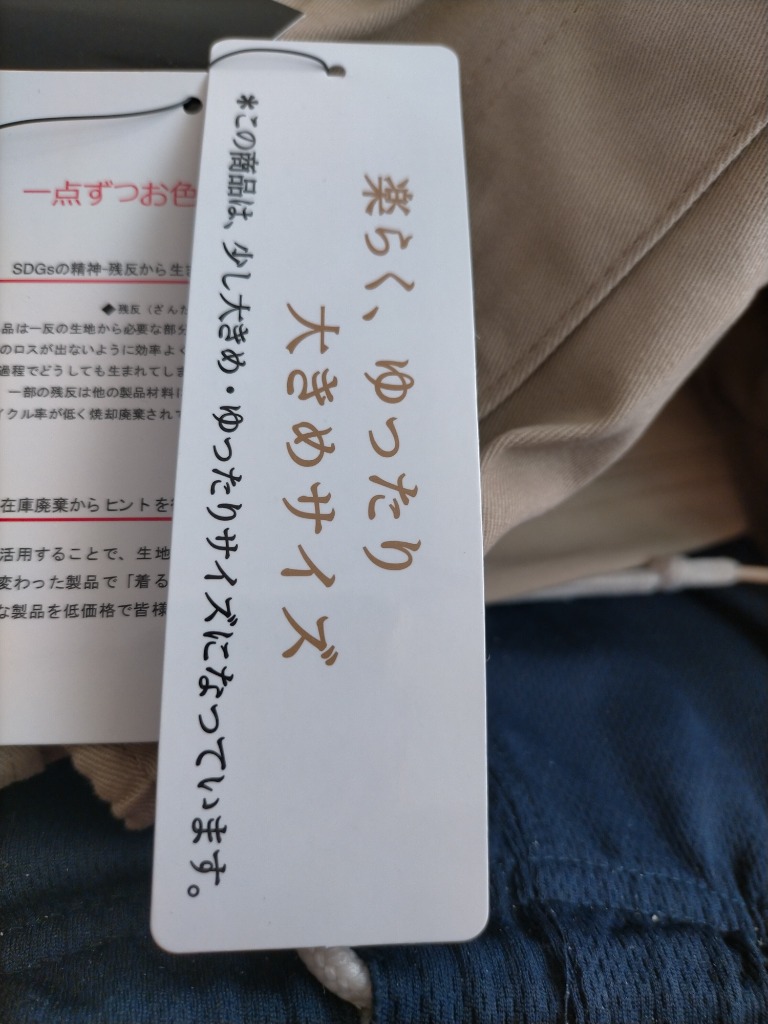 楽らく、ゆったり
大きめサイズ
*この商品は、少し大きめ・ゆったりサイズになっています。
一点ずつお色
SDGsの精神-残反から生
◆残反（ざんた
品は一反の生地から必要な部分
のロスが出ないように効率よく
過程でどうしても生まれてしま
一部の残反は他の製品材料に
イクル率が低く焼却廃棄されて
在庫廃棄からヒントを
活用することで、生地
変わった製品で「着る
な製品を低価格で皆様